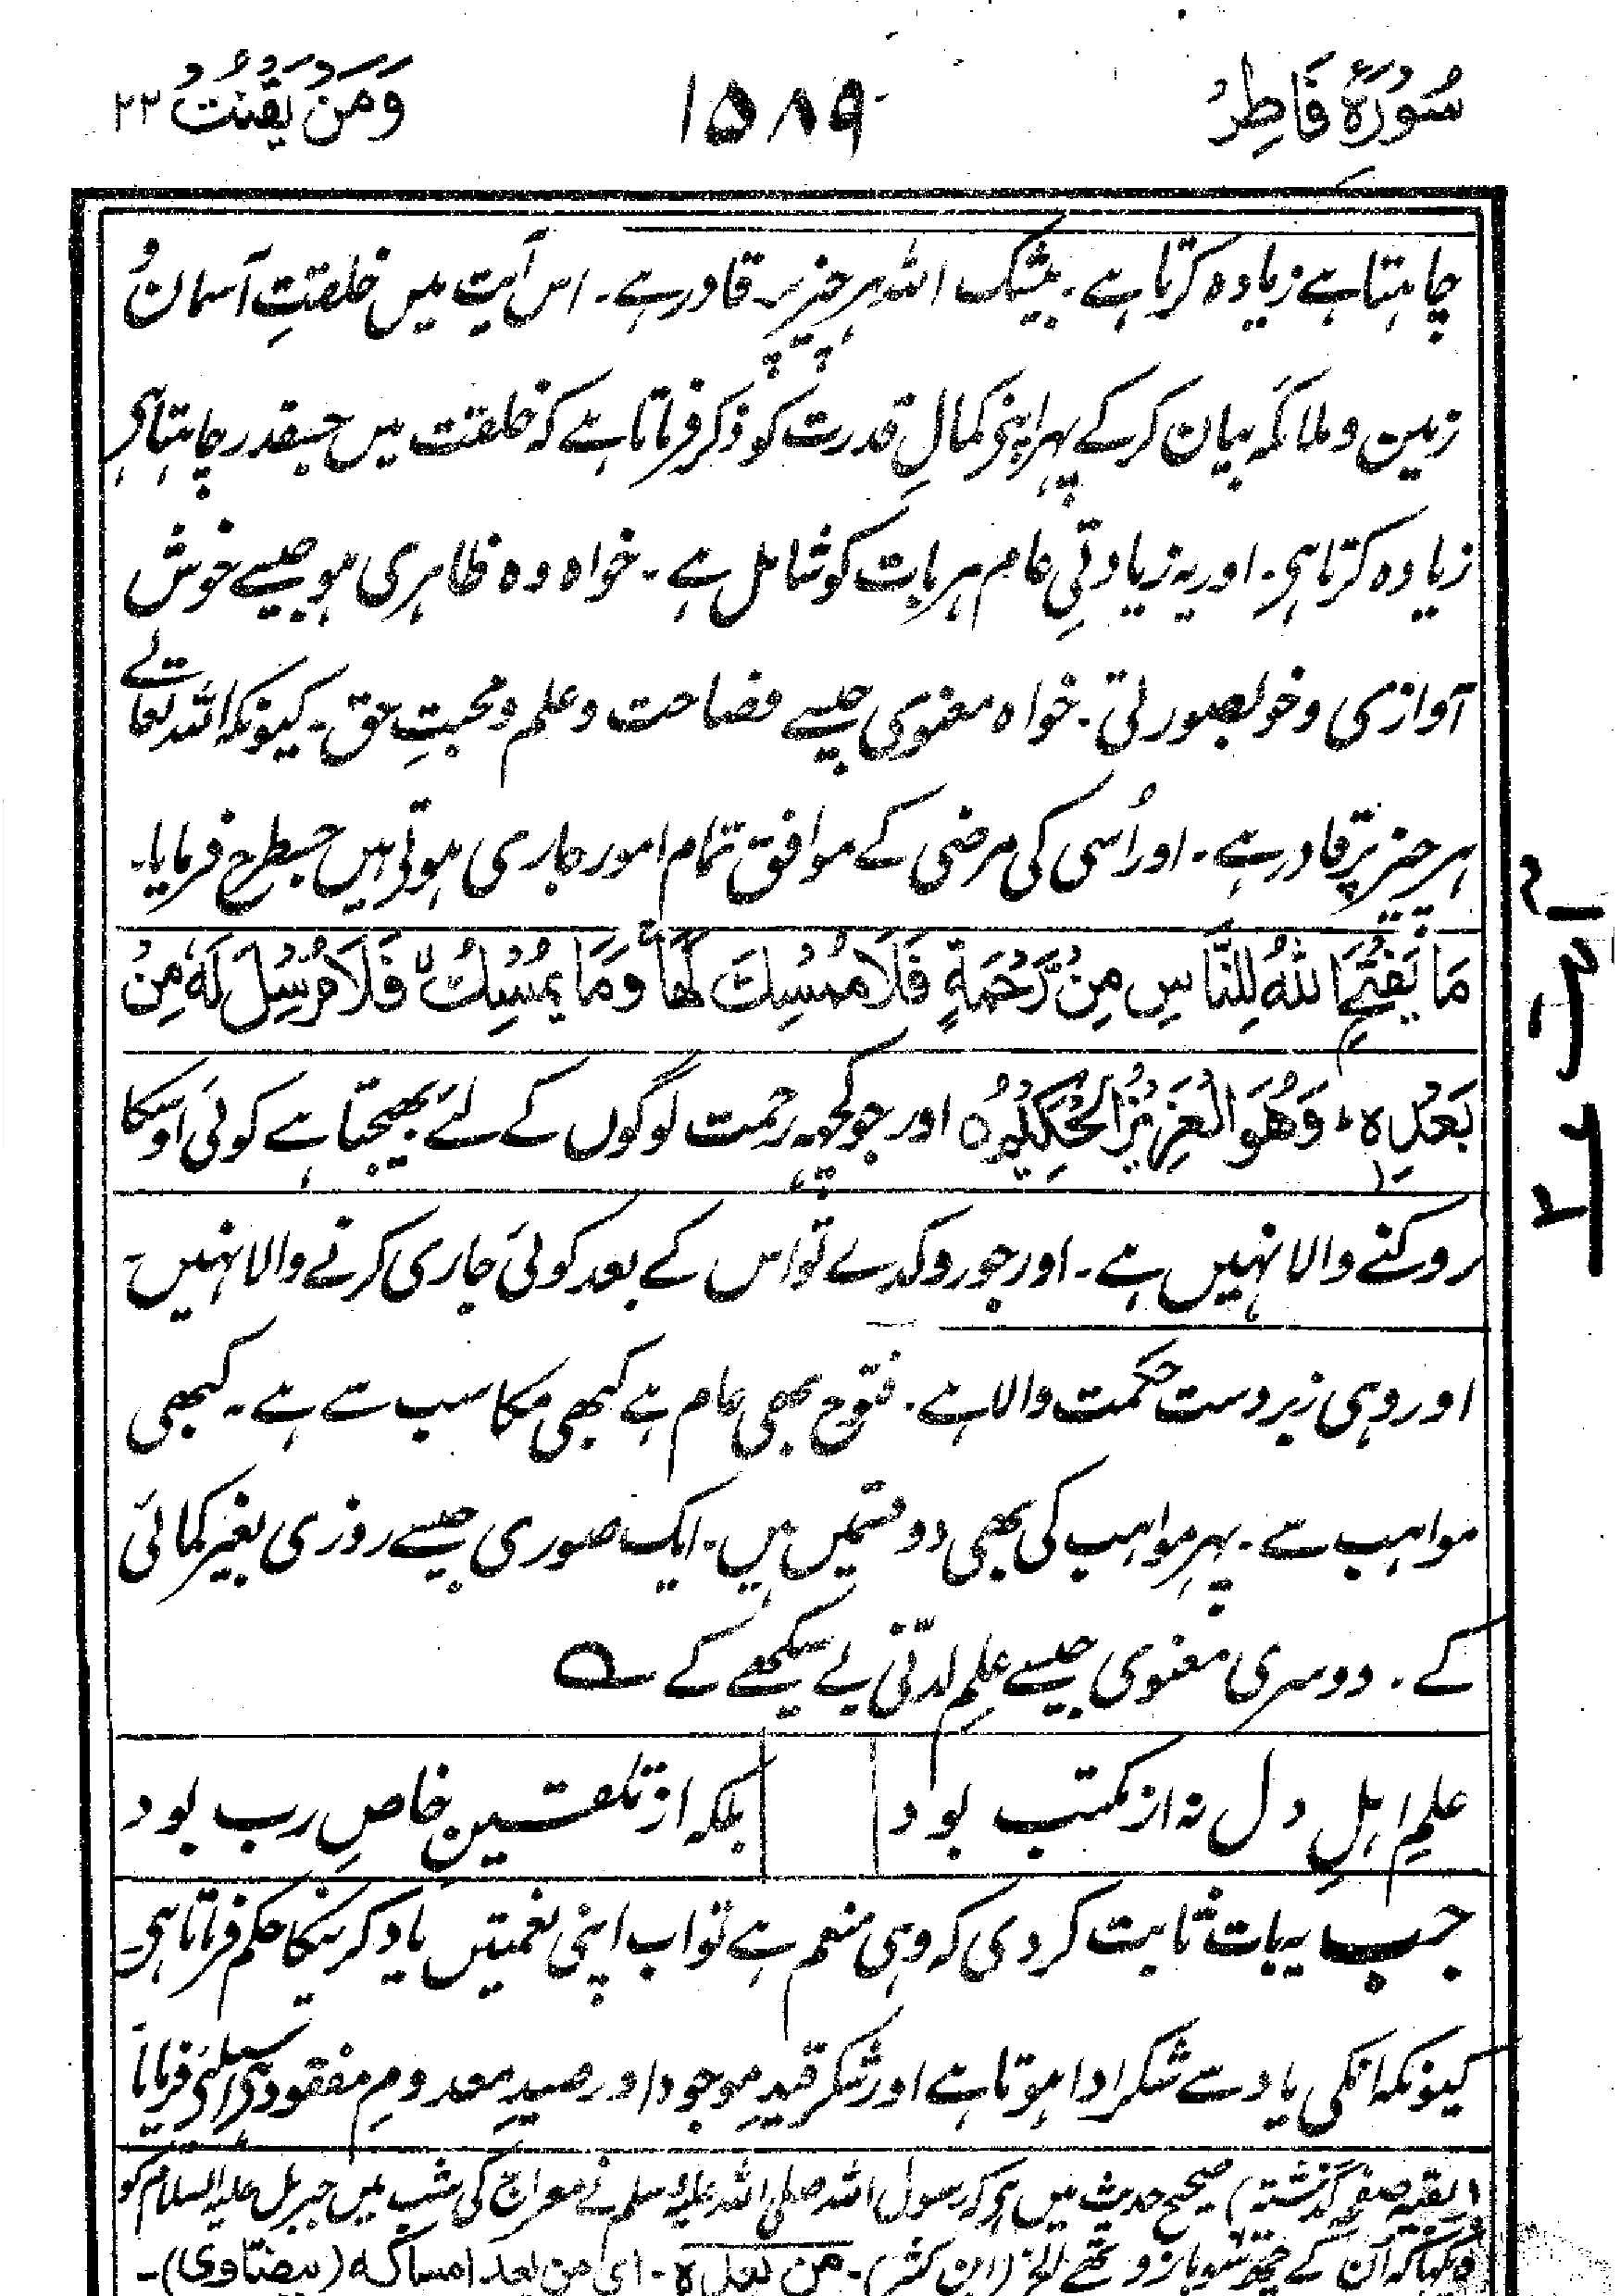 سُورَۃُ فَاطِرٍ
١٥٨٩
وَمَنۡ يَقۡنُتۡ ٢٢
چاہتا ہے زیادہ کرتا ہے۔ بیشک اللہ ہر چیز پر قادر ہے۔ اس آیت میں خلقتِ آسمان و
زمین و ملائکہ بیان کرکے پہر اپنی کمالِ قدرت کو ذکر فرماتا ہے کہ خلقت میں جسقدر چاہتا ہی
زیادہ کرتا ہی۔ اور یہ زیادتیِ عام ہر بات کو شامل ہے۔ خواہ وہ ظاہری ہو جیسے خوش
آوازی و خوبصورتی۔ خواہ معنوی جیسے فصاحت و علم و محبتِ حق۔ کیونکہ اللہ تعالے
ہر چیز پر قادر ہے۔ اور اُسی کی مرضی کے موافق تمام امور جاری ہوتی ہیں جسطرح فرمایا۔
مَا يَفۡتَحِ اللّٰهُ لِلنَّاسِ مِنۡ رَّحۡمَةٍ فَلَا مُمۡسِكَ لَهَا ۚ وَمَا يُمۡسِكۡ ۙ فَلَا مُرۡسِلَ لَهٗ مِنۡ
بَعۡدِهٖ ؕ وَهُوَ الۡعَزِيۡزُ الۡحَكِيۡمُ ہ اور جو کچھہ رحمت لوگوں کے لئے بھیجتا ہے کوئی اوسکا
روکنے والا نہیں ہے۔ اور جو روکدے تو اس کے بعد کوئی جاری کرنے والا نہیں۔
اور وہی زبردست حکمت والا ہے۔ فتوح بھی عام ہے کبھی مکاسب سے ہے۔ کبھی
مواہب سے۔ پہر مواہب کی بھی دو قسمیں ہیں۔ ایک صوری جیسے روزی بغیر کمائی
کے۔ دوسری معنوی جیسے علمِ لدنّی بے سیکھے کے ؎
علمِ اہلِ دل نہ از مکتب بود
بلکہ از تلقین خاصِ رب بود
جب یہ بات ثابت کردی کہ وہی منعم ہے تو اب اپنی نعمتیں یاد کرنیکا حکم فرماتا ہی۔
کیونکہ انکی یاد سے شکر ادا ہوتا ہے اور شکر قیدِ موجود اور صیدِ معدومِ مفقود ہی اسلئے فرمایا
(بقیہ صفحہ گذشتہ) صحیح حدیث میں ہی کہ رسول اللہ صلی اللہ علیہ وسلم نے معراج کی شب میں جبریل علیہ السلام کو
دیکہا کہ آن کے چھہ سو بازو تھے الخ (ابن کثیر)۔ من بعدہ۔ ای من بعد امساکہ (بیضاوی)۔